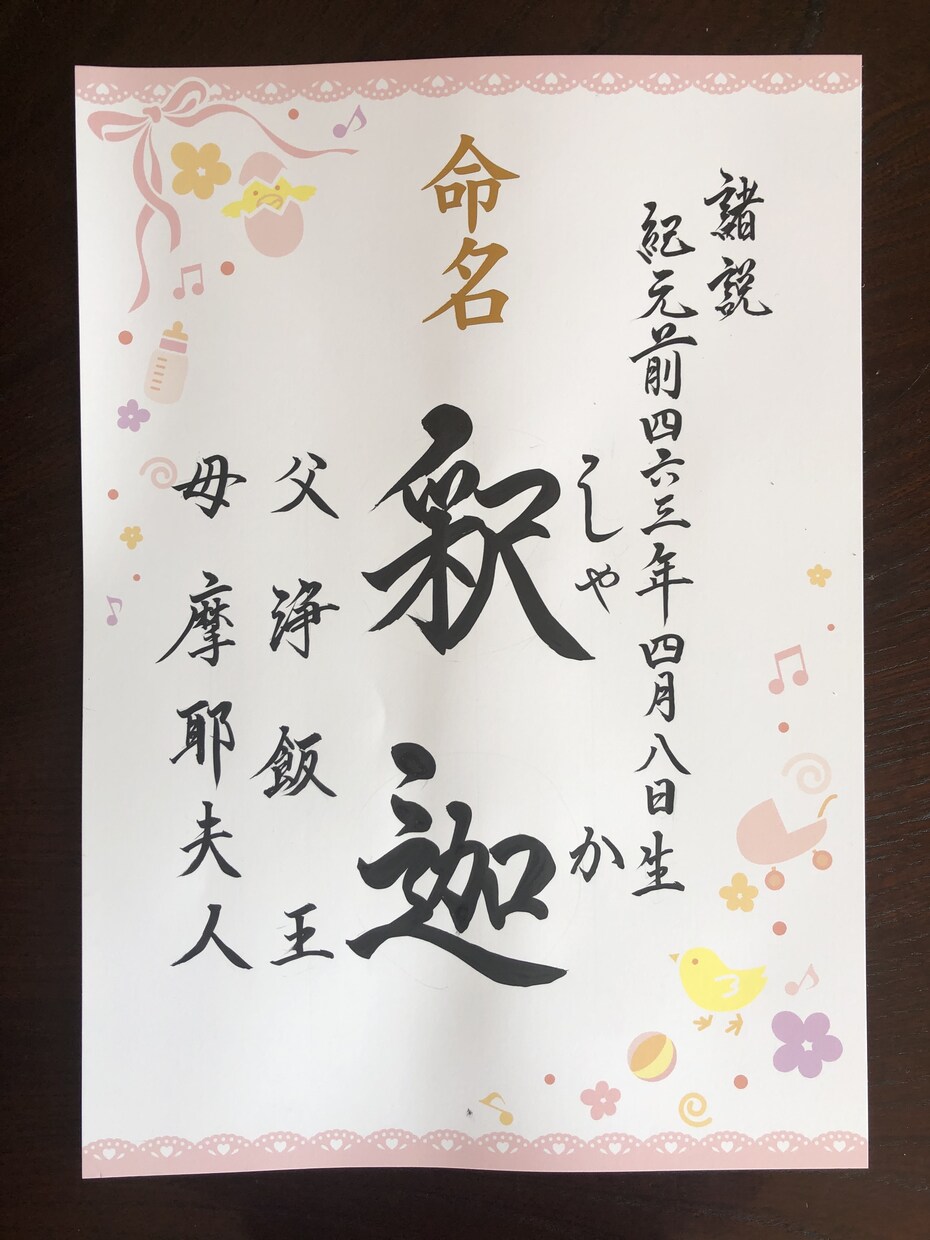 諸説
紀元前四六三年四月八日生
命名
しゃか
釈迦
父 浄飯王
母 摩耶夫人